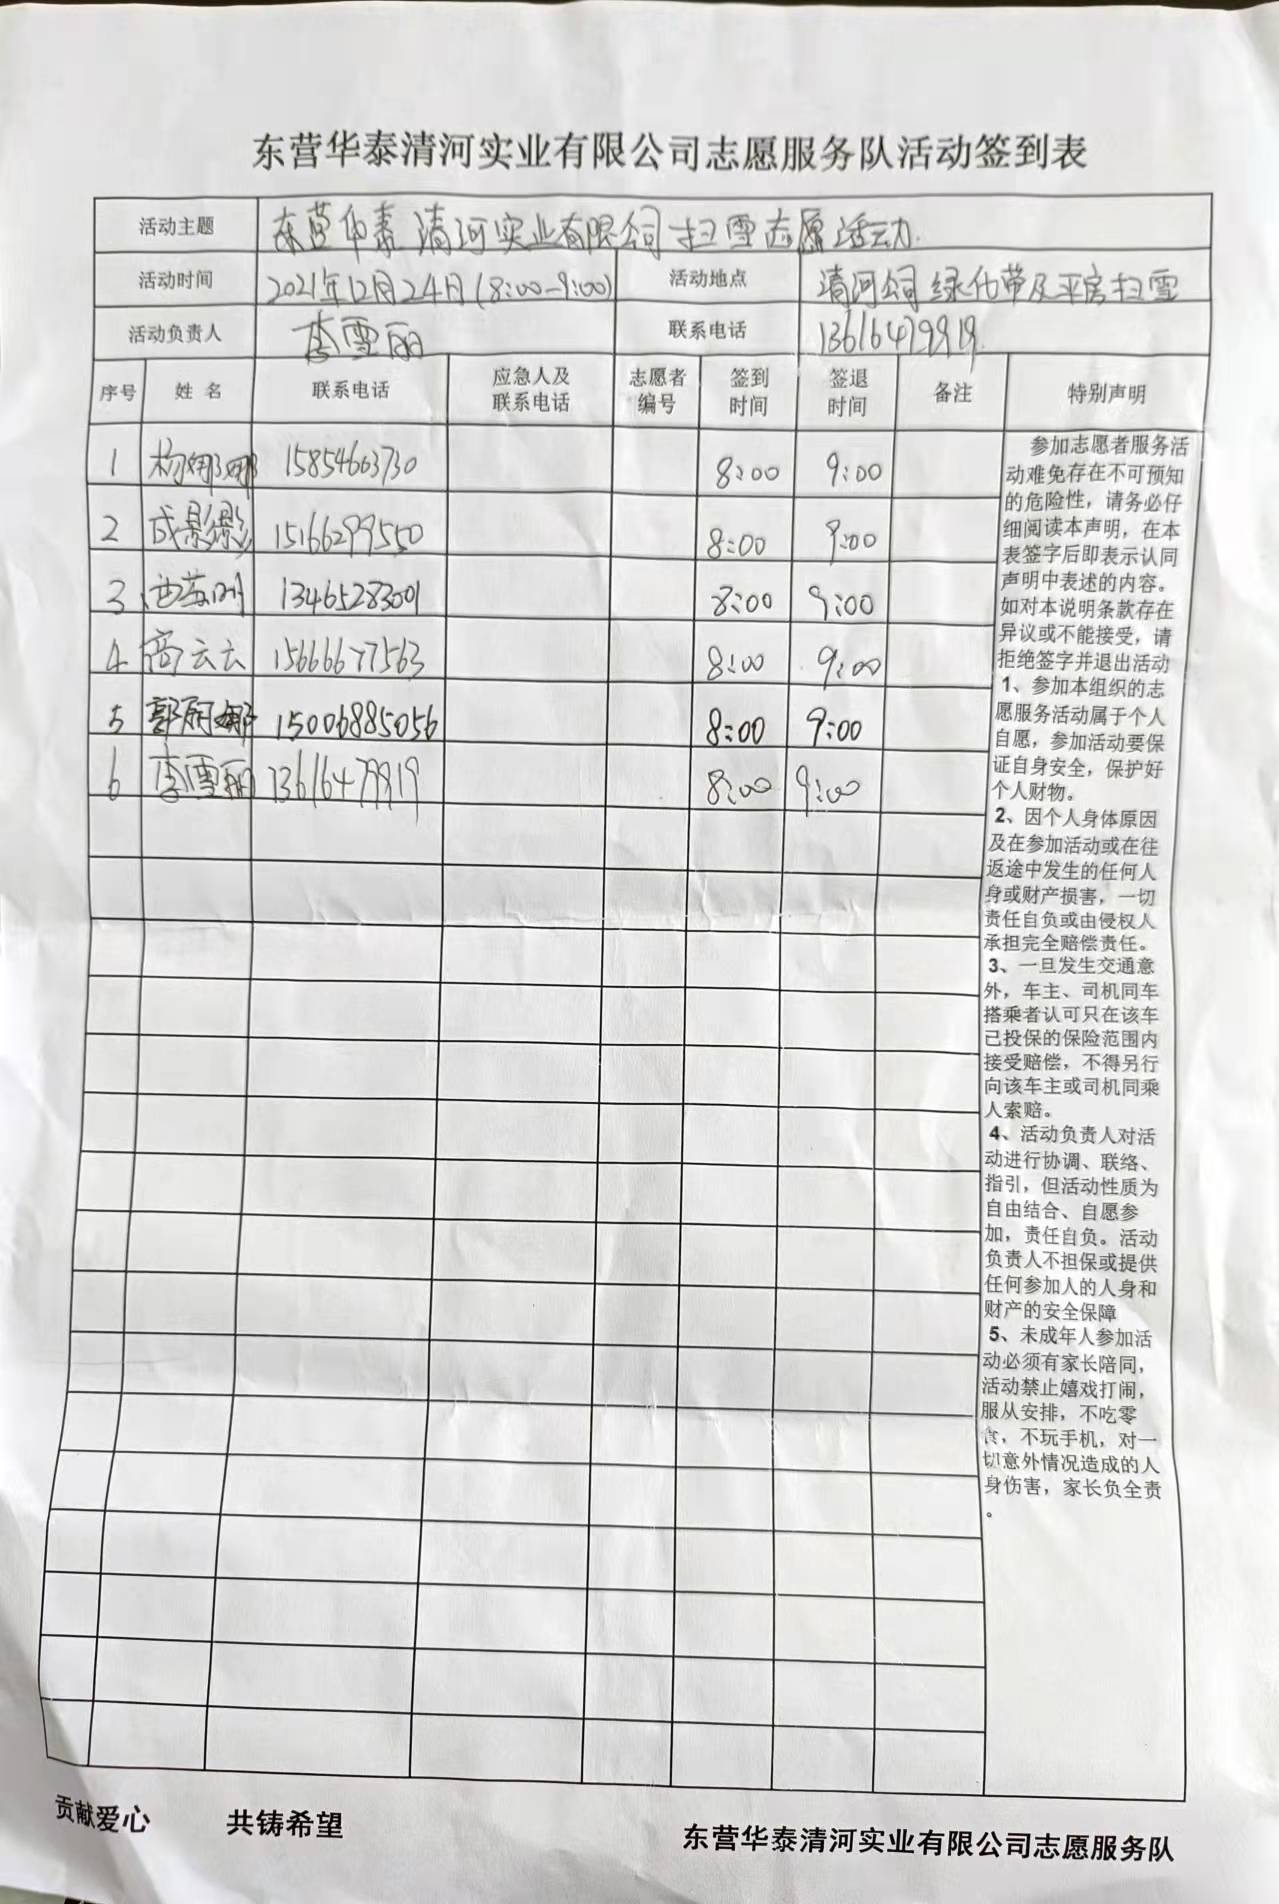 东营华泰清河实业有限公司志愿服务队活动签到表
活动主题 东营华泰清河实业有限公司扫雪志愿活动.
活动时间 2021年12月24日(8:00-9:00) 活动地点 清河公司绿化带及平房扫雪
活动负责人 李雪丽 联系电话 13616479919.
序号 姓名 联系电话 应急人及联系电话 志愿者编号 签到时间 签退时间 备注 特别声明
1 杨娜娜 15854663730 8:00 9:00
2 成影影 15166299550 8:00 9:00
3 13465283001 8:00 9:00
4 商云云 15666677563 8:00 9:00
5 郭丽娜 15006885056 8:00 9:00
6 李雪丽 13616479919 8:00 9:00
参加志愿者服务活
动难免存在不可预知
的危险性，请务必仔
细阅读本声明，在本
表签字后即表示认同
声明中表述的内容。
如对本说明条款存在
异议或不能接受，请
拒绝签字并退出活动
1、参加本组织的志
愿服务活动属于个人
自愿，参加活动要保
证自身安全，保护好
个人财物。
2、因个人身体原因
及在参加活动或在往
返途中发生的任何人
身或财产损害，一切
责任自负或由侵权人
承担完全赔偿责任。
3、一旦发生交通意
外，车主、司机同车
搭乘者认可只在该车
已投保的保险范围内
接受赔偿，不得另行
向该车主或司机同乘
人索赔。
4、活动负责人对活
动进行协调、联络、
指引，但活动性质为
自由结合、自愿参
加，责任自负。活动
负责人不担保或提供
任何参加人的人身和
财产的安全保障
5、未成年人参加活
动必须有家长陪同，
活动禁止嬉戏打闹，
服从安排，不吃零
食，不玩手机，对一
切意外情况造成的人
身伤害，家长负全责
。
贡献爱心 共铸希望
东营华泰清河实业有限公司志愿服务队